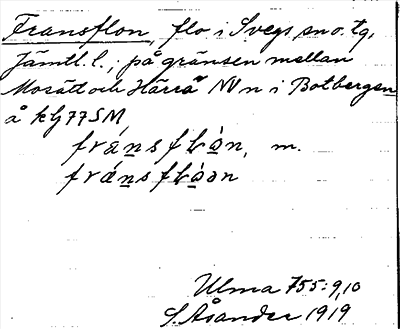 Fransflon, flo i Svegs sn o. tg,
Jämtl. l.; på gränsen mellan
Mosätt och Härrå NV n i Botbergen
å kbl 77 SM
fránsflòn, m.
fránsflòən
Ulma 755:9,10
S. Åsander 1919